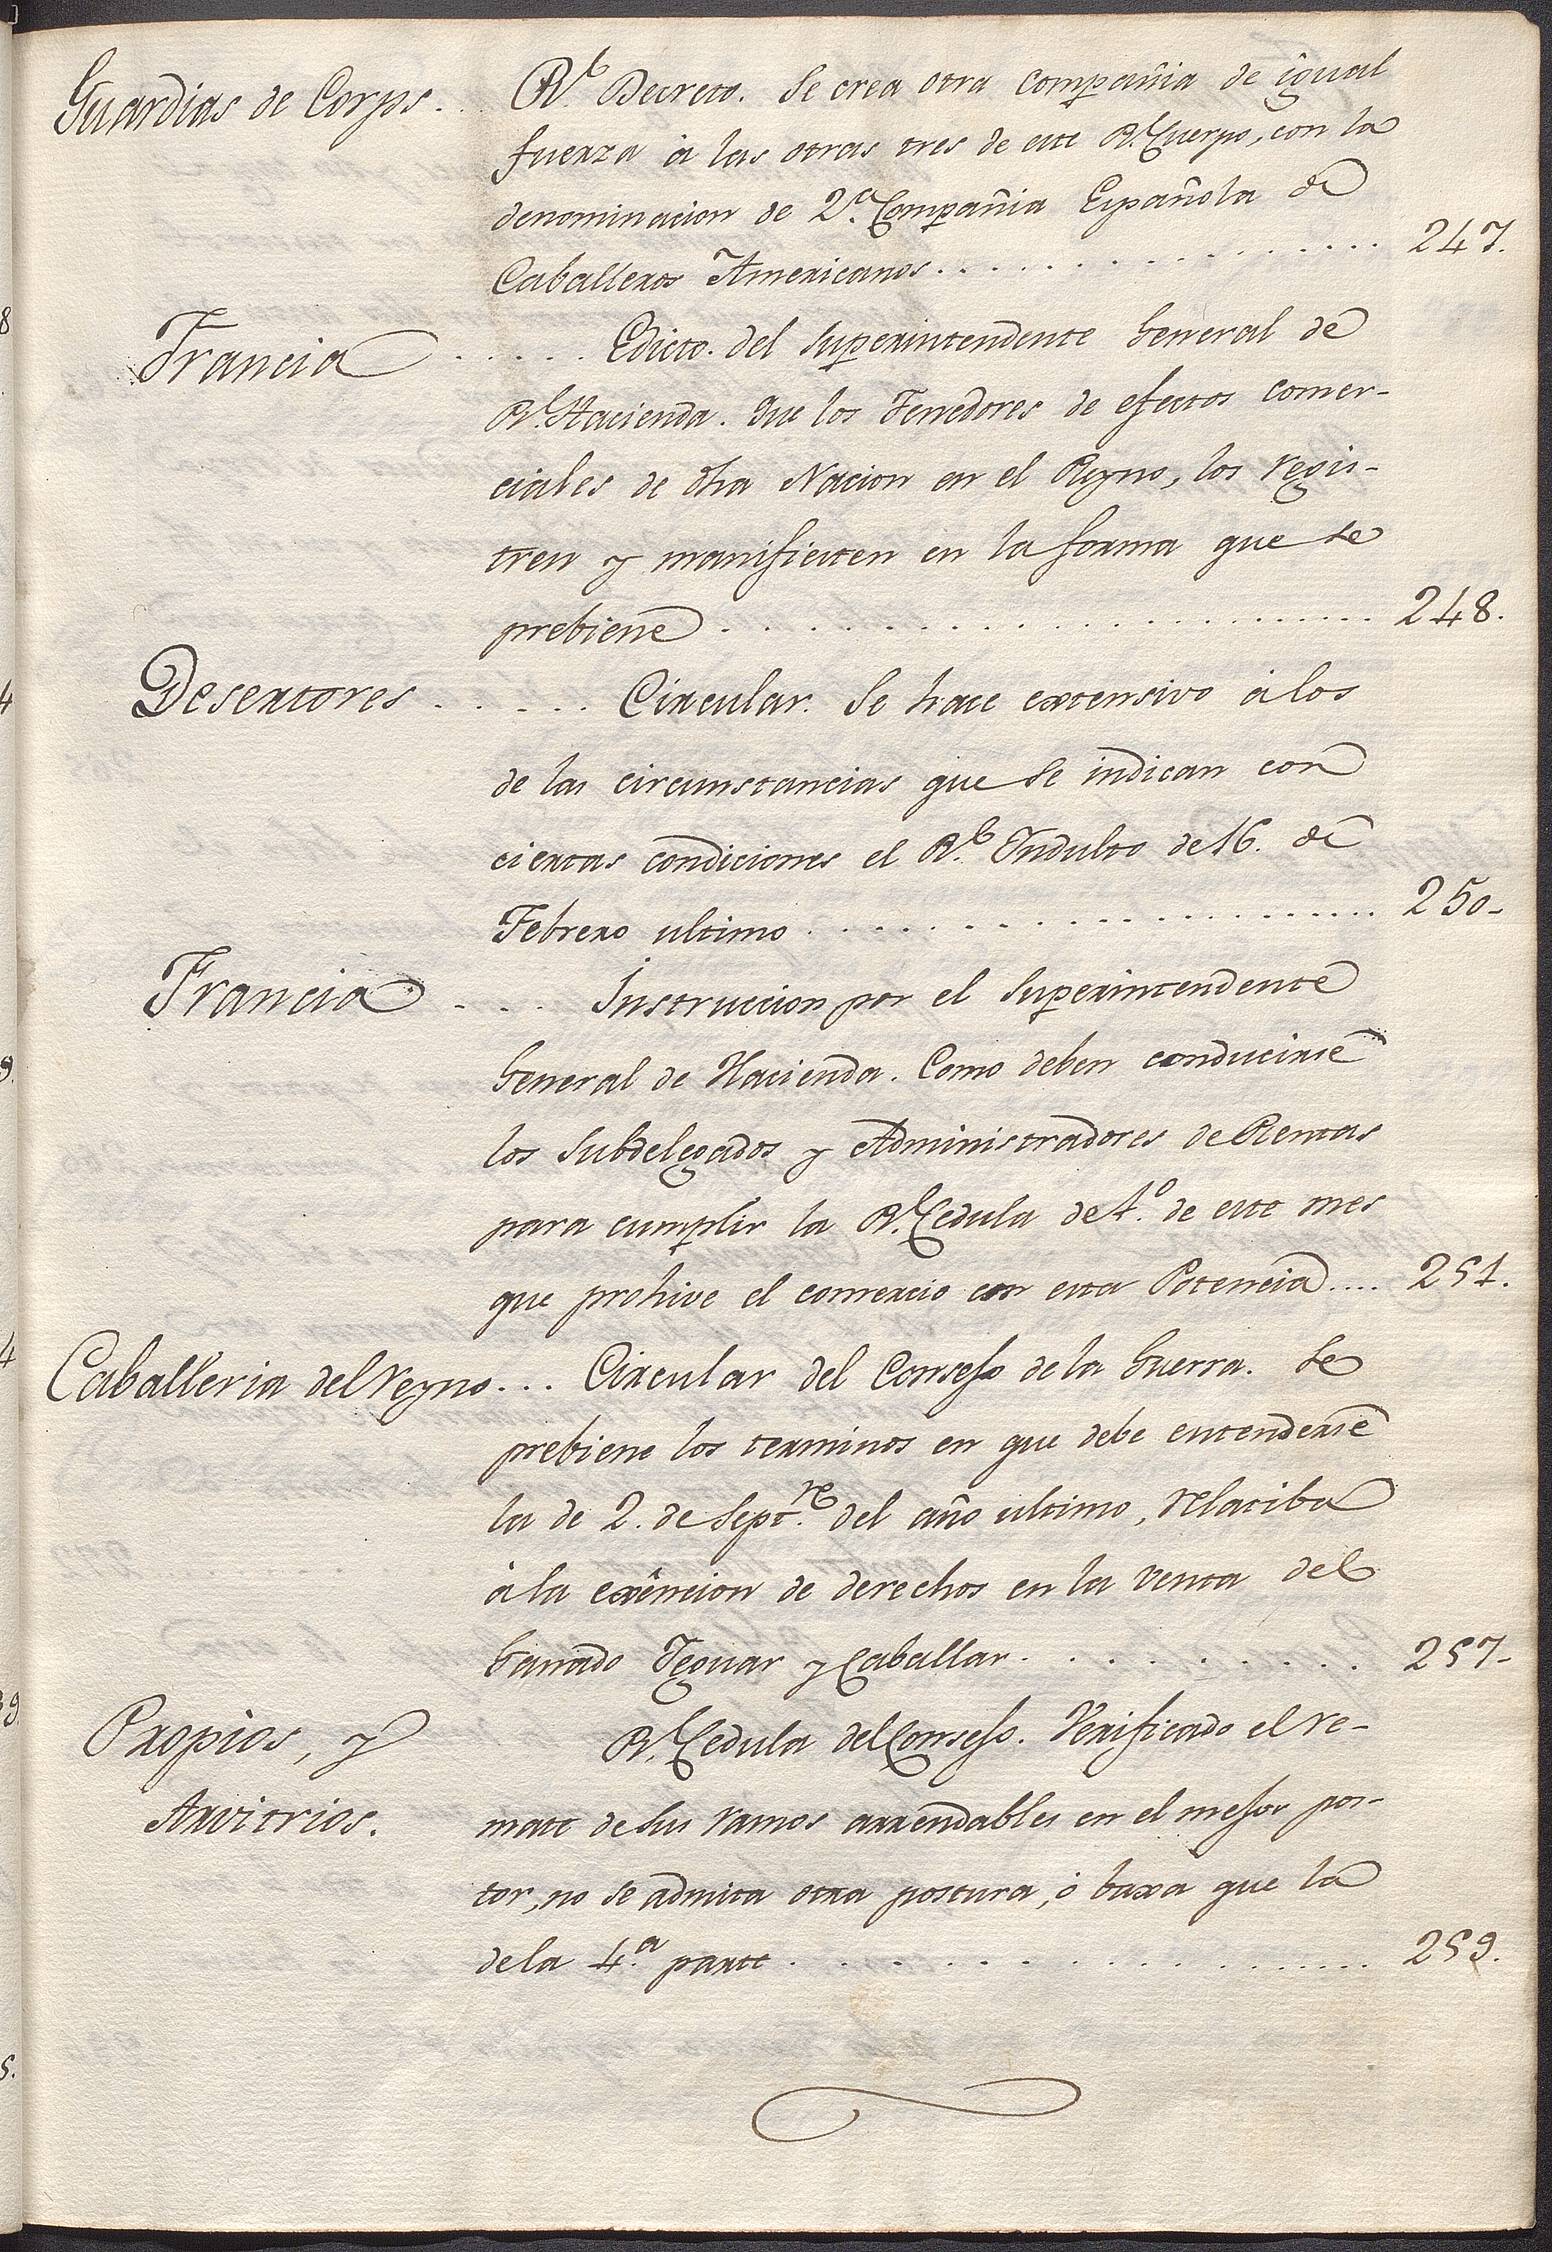 Guardias de Corps. . R.l Decreto. Se crea otra compañia de igual
fuerza à las otras tres de este R.l Cuerpo, con la
denominacion de 2.a Compañia Española de
Caballeros Americanos . . . . . . . . . . . . . 247.
Francia . . . . . Edicto. del Superintendente General de
R.l Hacienda. Que los Tenedores de efectos comer-
ciales de dha Nacion en el Reyno, los regis-
tren y manifiesten en la forma que se
prebiene . . . . . . . . . . . . . . . . . . . . 248.
Desertores . . . . . Circular. Se hace extensivo à los
de las circunstancias que se indican con
ciertas condiciones el R.l Indulto de 16. de
Febrero ultimo . . . . . . . . . . . . . . . . . 250-
Francia . . . . Instruccion por el Superintendente
General de Hacienda. Como deben conducirse
los Subdelegados y Administradores de Rentas
para cumplir la R.l Cedula de 1.o de este mes
que prohive el comercio con esta Potencia .... 251.
Caballeria del reyno . . . Circular del Consejo de la Guerra. Se
prebiene los terminos en que debe entenderse
la de 2. de Sept.re del año ultimo, relatiba
à la exêncion de derechos en la venta del
Ganado Yeguar y Caballar . . . . . . . . . . 257-
Propios, y R.l Cedula del Consejo. Verificado el re-
Arvitrios. mate de sus ramos arrendables en el mejor pos-
tor, no se admita otra postura, ò baxa que la
de la 4.a parte . . . . . . . . . . . . . . . . 259.